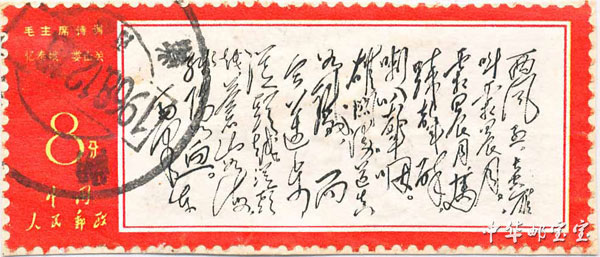 毛主席诗词
忆秦娥 娄山关
8分
中国
人民邮政
西风烈，长空雁
叫霜晨月。
霜晨月，马
蹄声碎，
喇叭声咽。
雄关漫道真
如铁，而
今迈步
从头越。从头
越，苍山如海，
残阳如血。
毛泽东
1968.12
中华邮宝宝